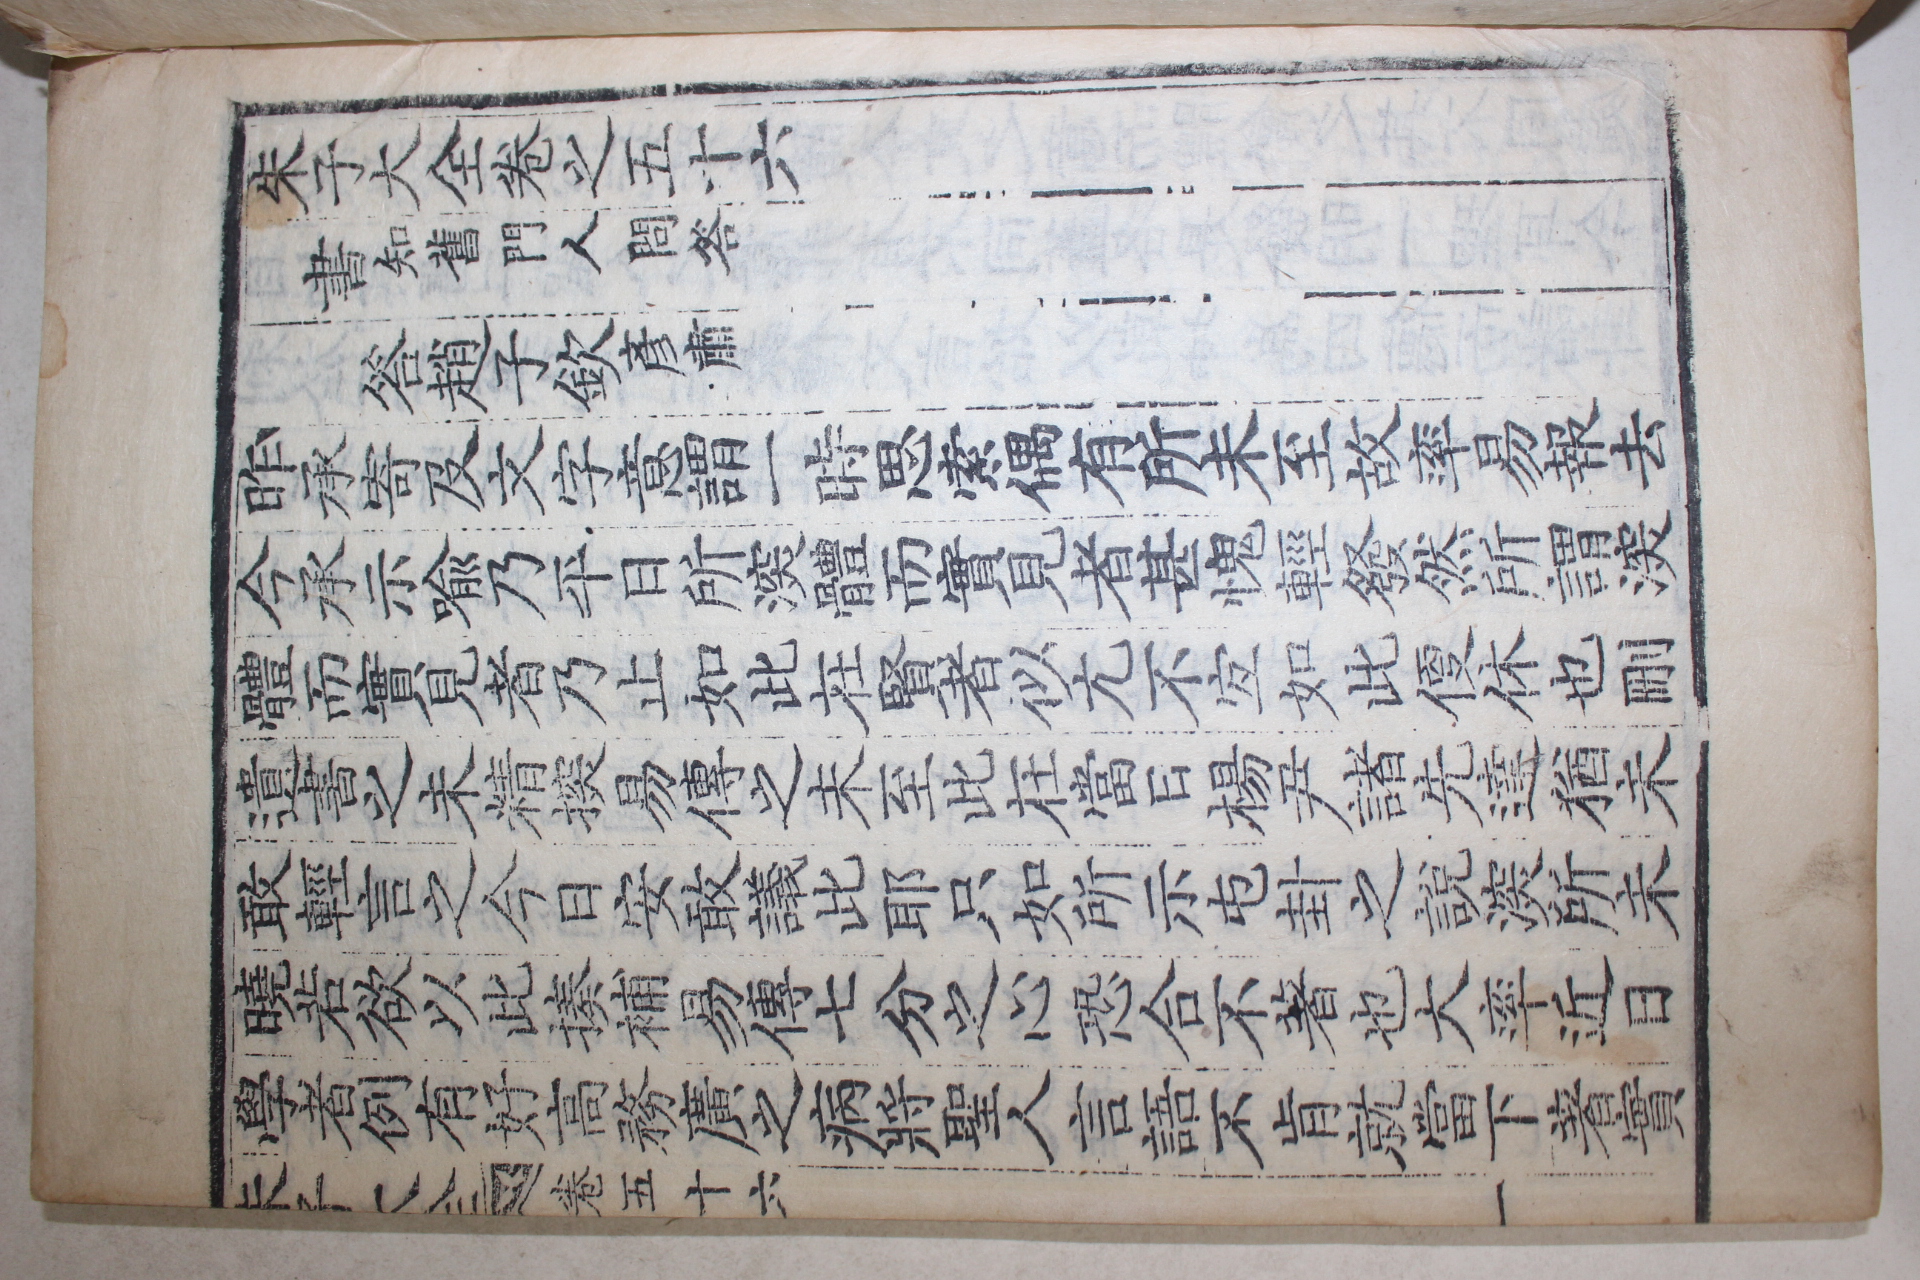 朱子大全卷之五十六
書知舊門人問答
答趙子欽彥肅
昨承寄及文字意謂一時思索偶有所未至故率易報去
今承示喻乃平日所深體而實見者甚愧輕發然所謂深
體而實見者乃止如此在賢者似亢不宜如此便休也刪
遺書之未精掞易傳之未至此在當日楊尹諸先達猶未
敢輕言之今日安敢議此耶只如所示屯卦之說深所未
曉若欲以此揍補易傳七分之心恐合不著也大率近日
學者例有好高務廣之病將聖人言語不肯就當下著實
朱子大全 卷五十六 一